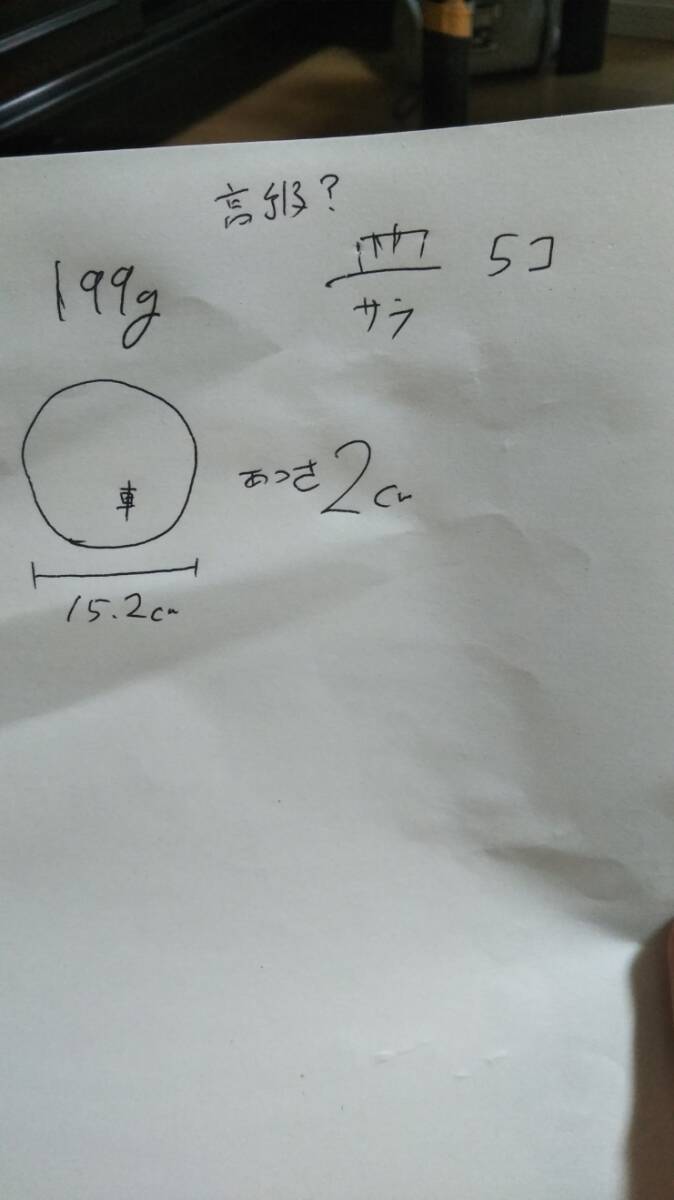 高級?
皿 5コ
サラ
199g
車
あつさ2cm
15.2cm